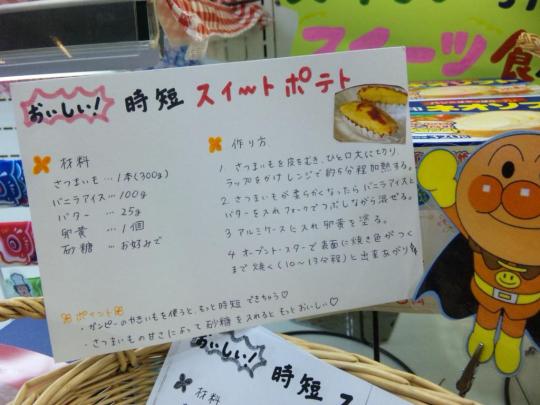 スイーツ 食
おいしい! 時短 スイートポテト
材料
さつまいも…1本(300g)
バニラアイス…100g
バター … 25g
卵黄 … 1個
砂糖 … お好みで
作り方
1. さつまいもを皮をむき、ひと口大に切り、
ラップをかけレンジで約5分程加熱する。
2. さつまいもが柔らかくなったらバニラアイスと
バターを入れフォークでつぶしながら混ぜる。
3 アルミケースに入れ卵黄を塗る。
4 オーブントースターで表面に焼き色がつく
まで焼く(10〜13分程)と出来あがり
ポイント
・ガンピーのやきいもを使うと、もっと時短できちゃう♡
・さつまいもの甘さによって砂糖を入れるともっとおいしい♡
おいしい! 時短 ス
材料